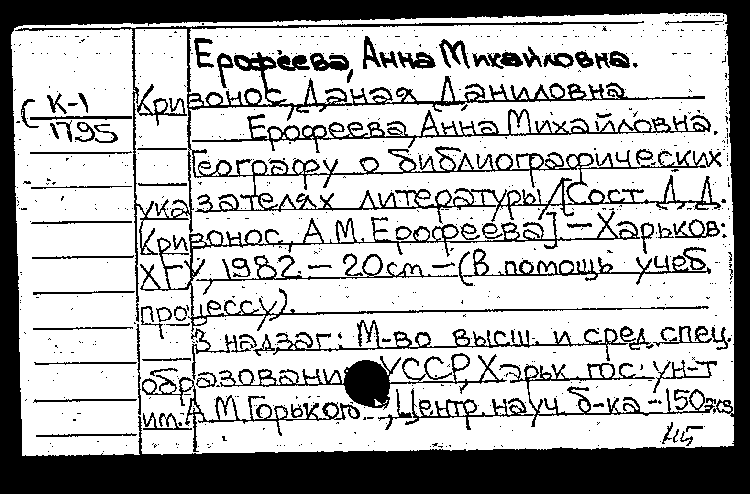 Ерофеева, Анна Михайловна.
С К-1
1795
Кривонос, Даная Даниловна
Ерофеева, Анна Михайловна.
Географу о библиографических
указателях литературы/[Сост. Д. Д.
Кривонос, А.М. Ерофеева] – Харьков:
ХГУ, 1982. – 20 cm – (В помощь учеб.
процессу).
В надзаг: М-во высш. и сред. спец.
образования УССР, Харьк. гос. ун-т
им. А.М. Горького, Центр. науч. б-ка – 150 экз.